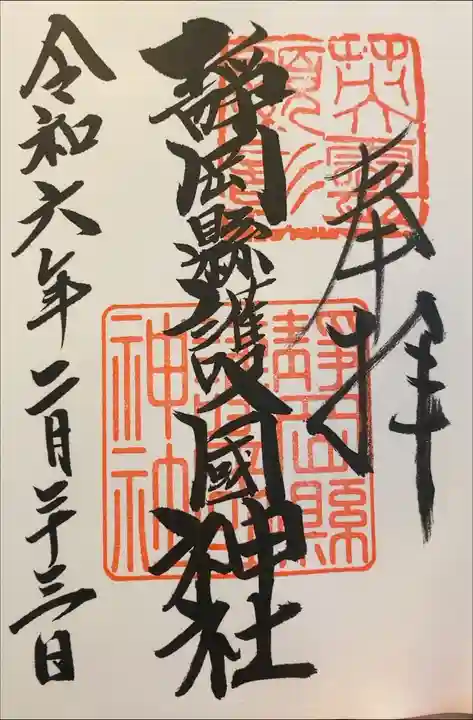 奉拝
靜岡縣護國神社
令和六年二月二十三日
靜岡縣
護國
神社